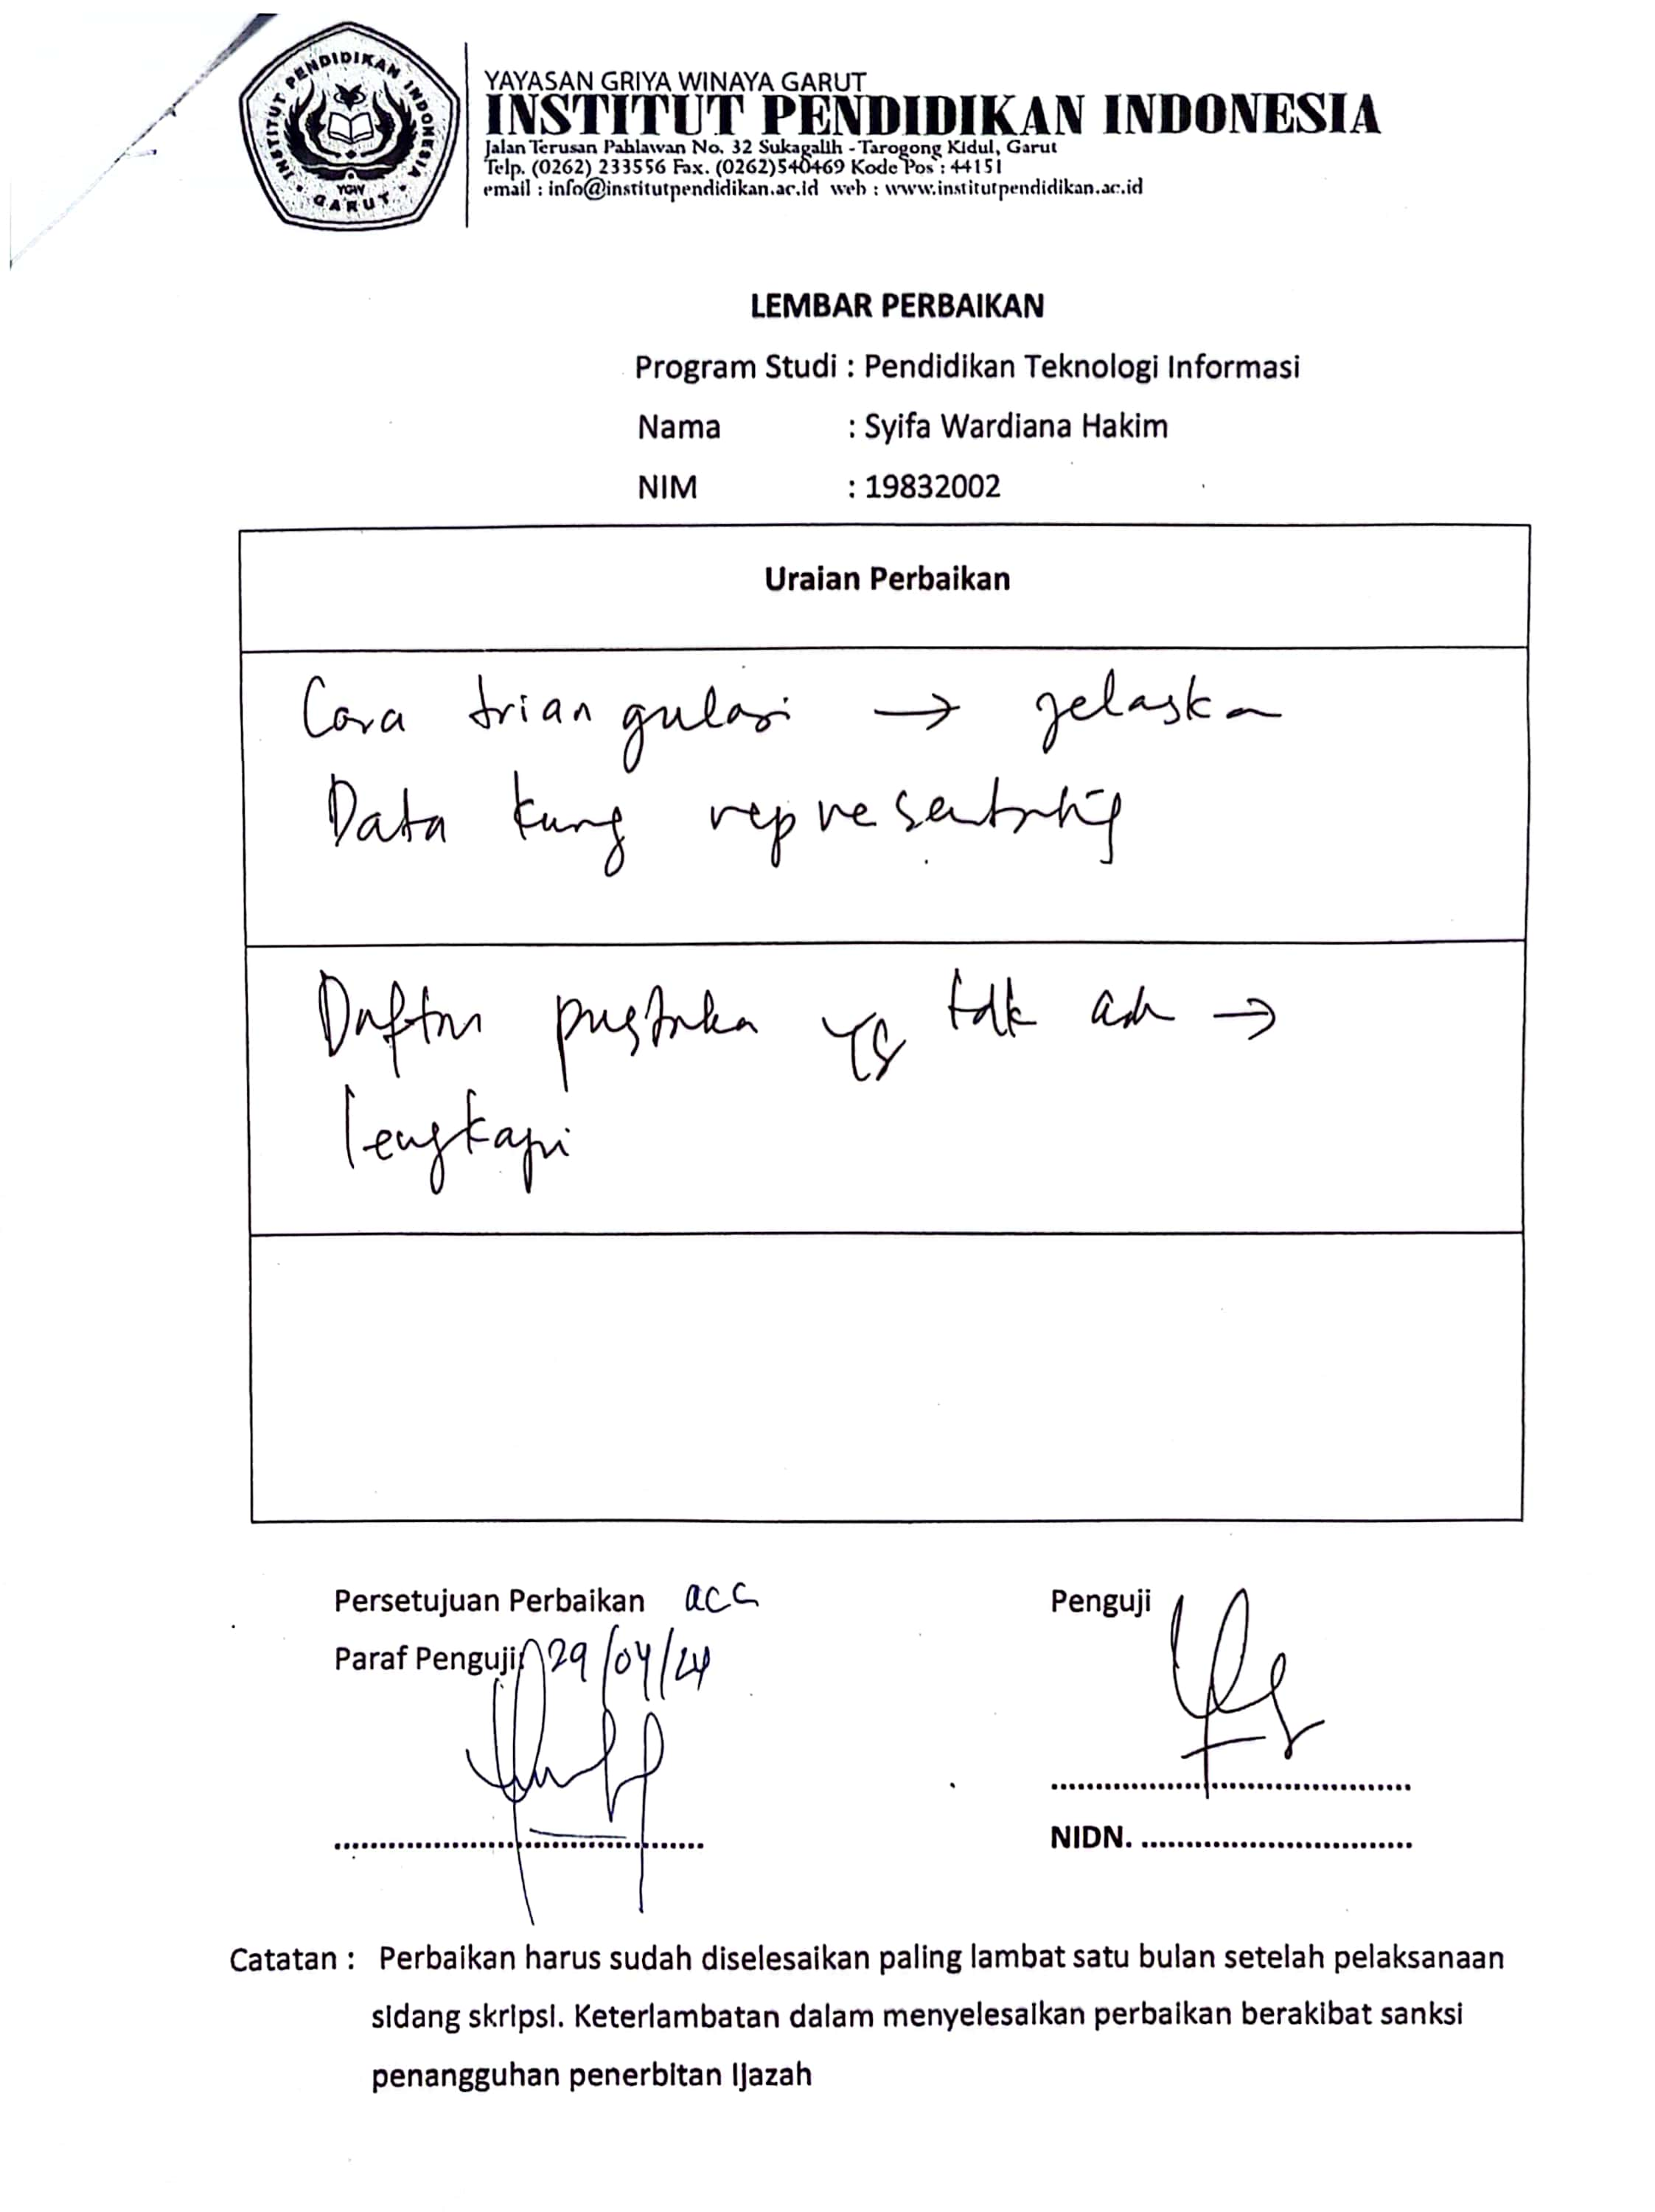 INSTITUT PENDIDIKAN INDONESIA
YGIW
GARUT
YAYASAN GRIYA WINAYA GARUT
INSTITUT PENDIDIKAN INDONESIA
Jalan Terusan Pahlawan No. 32 Sukagalih - Tarogong Kidul, Garut
Telp. (0262) 233556 Fax. (0262)540469 Kode Pos : 44151
email : info@institutpendidikan.ac.id web : www.institutpendidikan.ac.id
LEMBAR PERBAIKAN
Program Studi : Pendidikan Teknologi Informasi
Nama : Syifa Wardiana Hakim
NIM : 19832002
Uraian Perbaikan
Cara triangulasi → jelaska
Data kurng representatif
Daftar pustaka yg tdk ada →
lengkapi
Persetujuan Perbaikan acc
Paraf Penguji: 29/04/24
Penguji
NIDN. ..............................
Catatan : Perbaikan harus sudah diselesaikan paling lambat satu bulan setelah pelaksanaan
sidang skripsi. Keterlambatan dalam menyelesaikan perbaikan berakibat sanksi
penangguhan penerbitan Ijazah